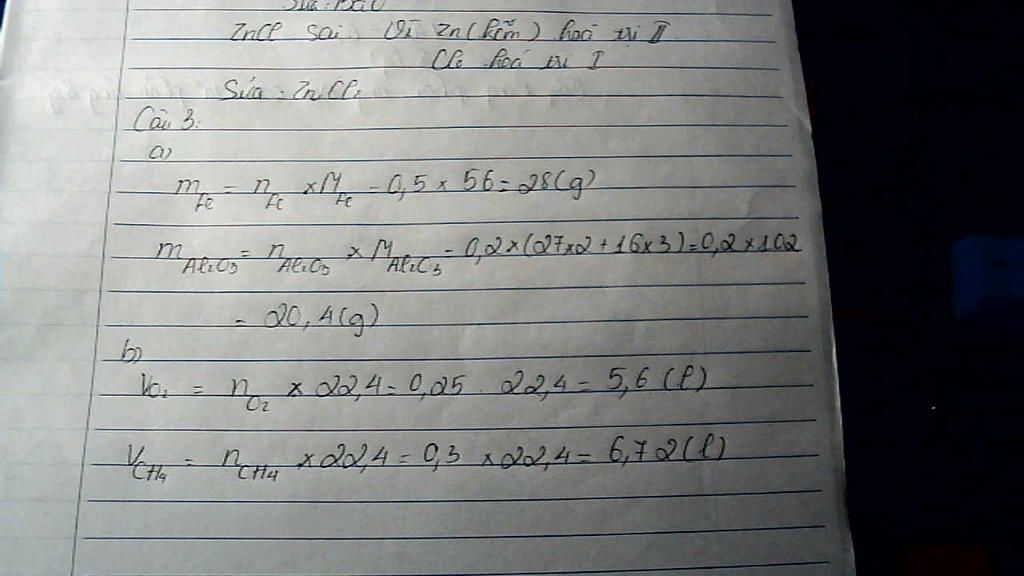 Sửa: BaO
ZnCl sai Vì Zn (kẽm) hoá trị II
Cl hoá trị I
Sửa: ZnCl₂
Câu 3:
a)
m Fe = n Fe × M Fe = 0,5 × 56 = 28(g)
m Al₂O₃ = n Al₂O₃ × M Al₂O₃ = 0,2 × (27×2 + 16×3) = 0,2 × 102
= 20,4(g)
b)
V O₂ = n O₂ × 22,4 = 0,25 . 22,4 = 5,6 (l)
V CH₄ = n CH₄ × 22,4 = 0,3 × 22,4 = 6,72(l)